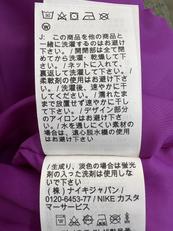 J: この商品を他の商品と
一緒に洗濯するのはお避け
下さい。/ 開閉部は全て閉
めてから洗濯・乾燥して下
さい。/ ネットに入れ、
裏返して洗濯して下さい。/
柔軟剤の使用はお避け下さ
い。/ 洗濯後、速やかに
干して下さい。/ 濡れたま
まで放置せず速やかに干し
て下さい。/ デザイン部分
のアイロンはお避け下さ
い。/ 水を通しにくい素材
の場合は、遠心脱水機の使
用はお避け下さい。
/ 生成り、淡色の場合は蛍光
剤の入った洗剤は使用しな
いで下さい
/ (株) ナイキジャパン/
0120-6453-77 / NIKE カスタ
マーサービス